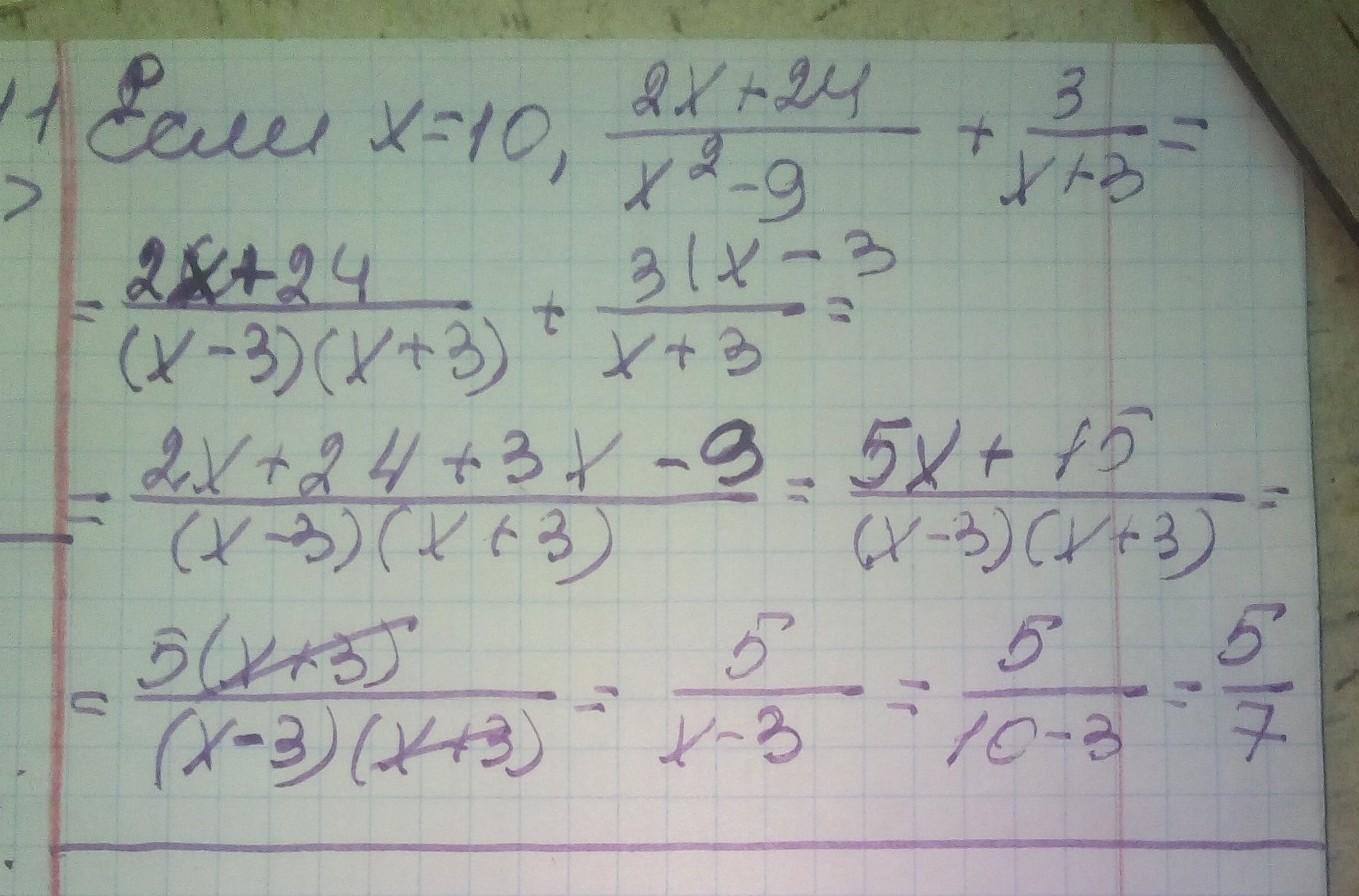 11 Если x=10, \frac{2x+24}{x^2-9} + \frac{3}{x+3} =
= \frac{2x+24}{(x-3)(x+3)} + \frac{3(x-3}{x+3} =
= \frac{2x+24+3x-9}{(x-3)(x+3)} = \frac{5x+15}{(x-3)(x+3)} =
= \frac{5(x+3)}{(x-3)(x+3)} = \frac{5}{x-3} = \frac{5}{10-3} = \frac{5}{7}